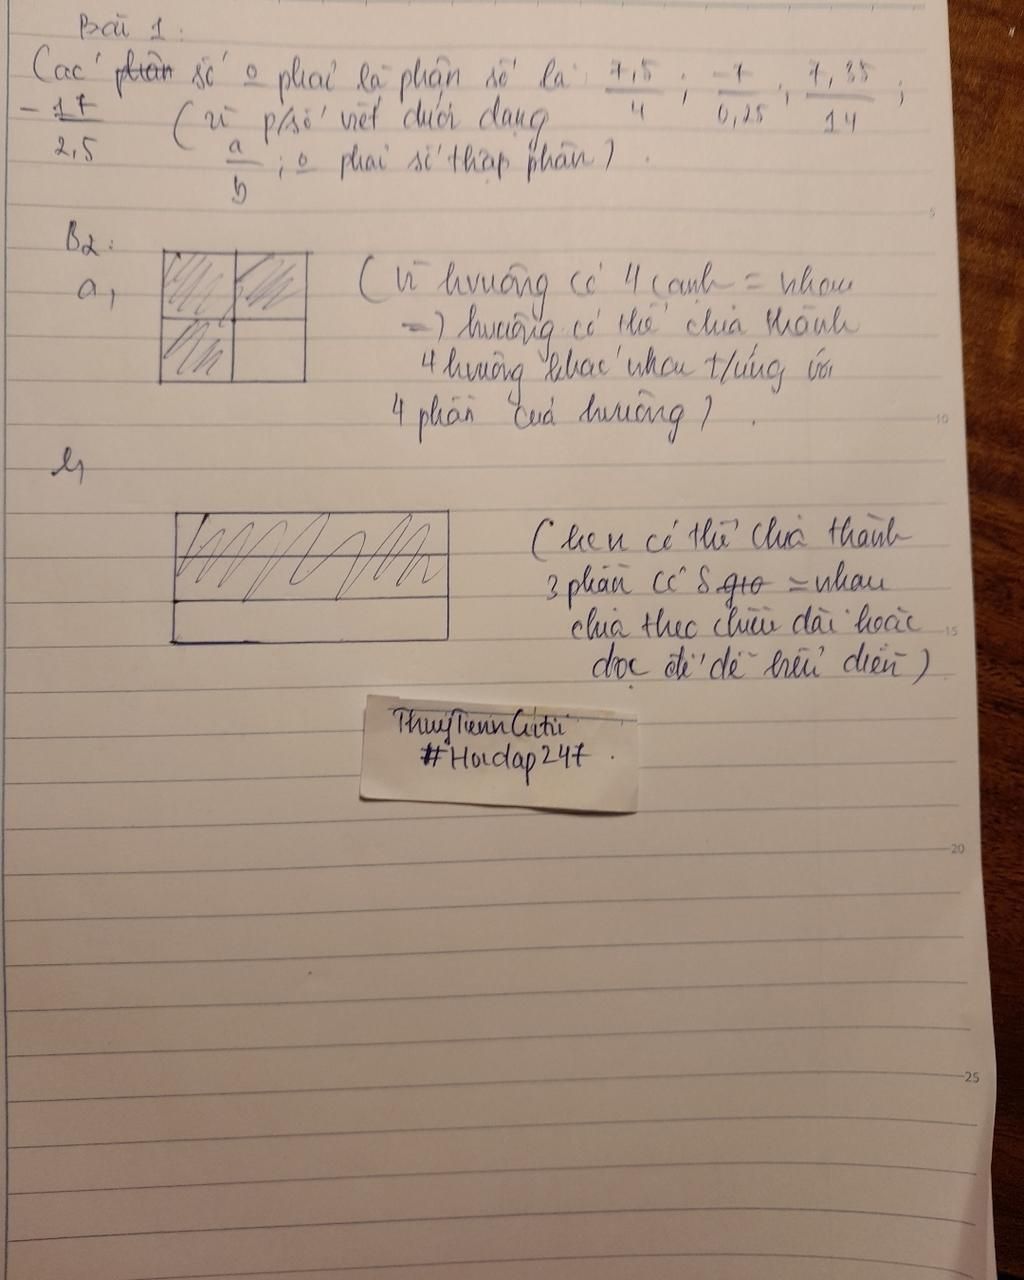 Bài 1:
Các phân số o phải là phân số là 7,5/4 ; -7/0,25 ; 7,35/14 ;
-17/2,5 (vì p/số viết dưới dạng
a/b ; o phải số thập phân) .
B2:
a,
(Vì hvuông có 4 cạnh = nhau
=) hvuông có thể chia thành
4 hvuông khác nhau t/ứng với
4 phần của hvuông) .
b,
(hcn có thể chia thành
3 phần có S = nhau
chia theo chiều dài hoặc
dọc để dễ biểu diễn)
#Hoidap247
5
10
15
20
25